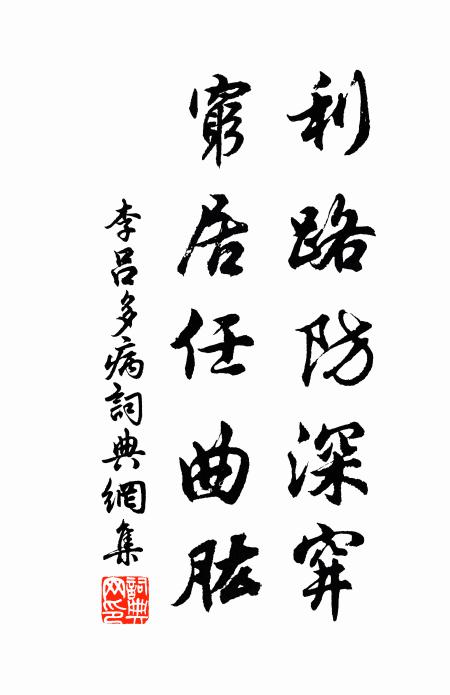 利路防深穽
窮居任曲肱
李呂多病詞典網集
詞典网印